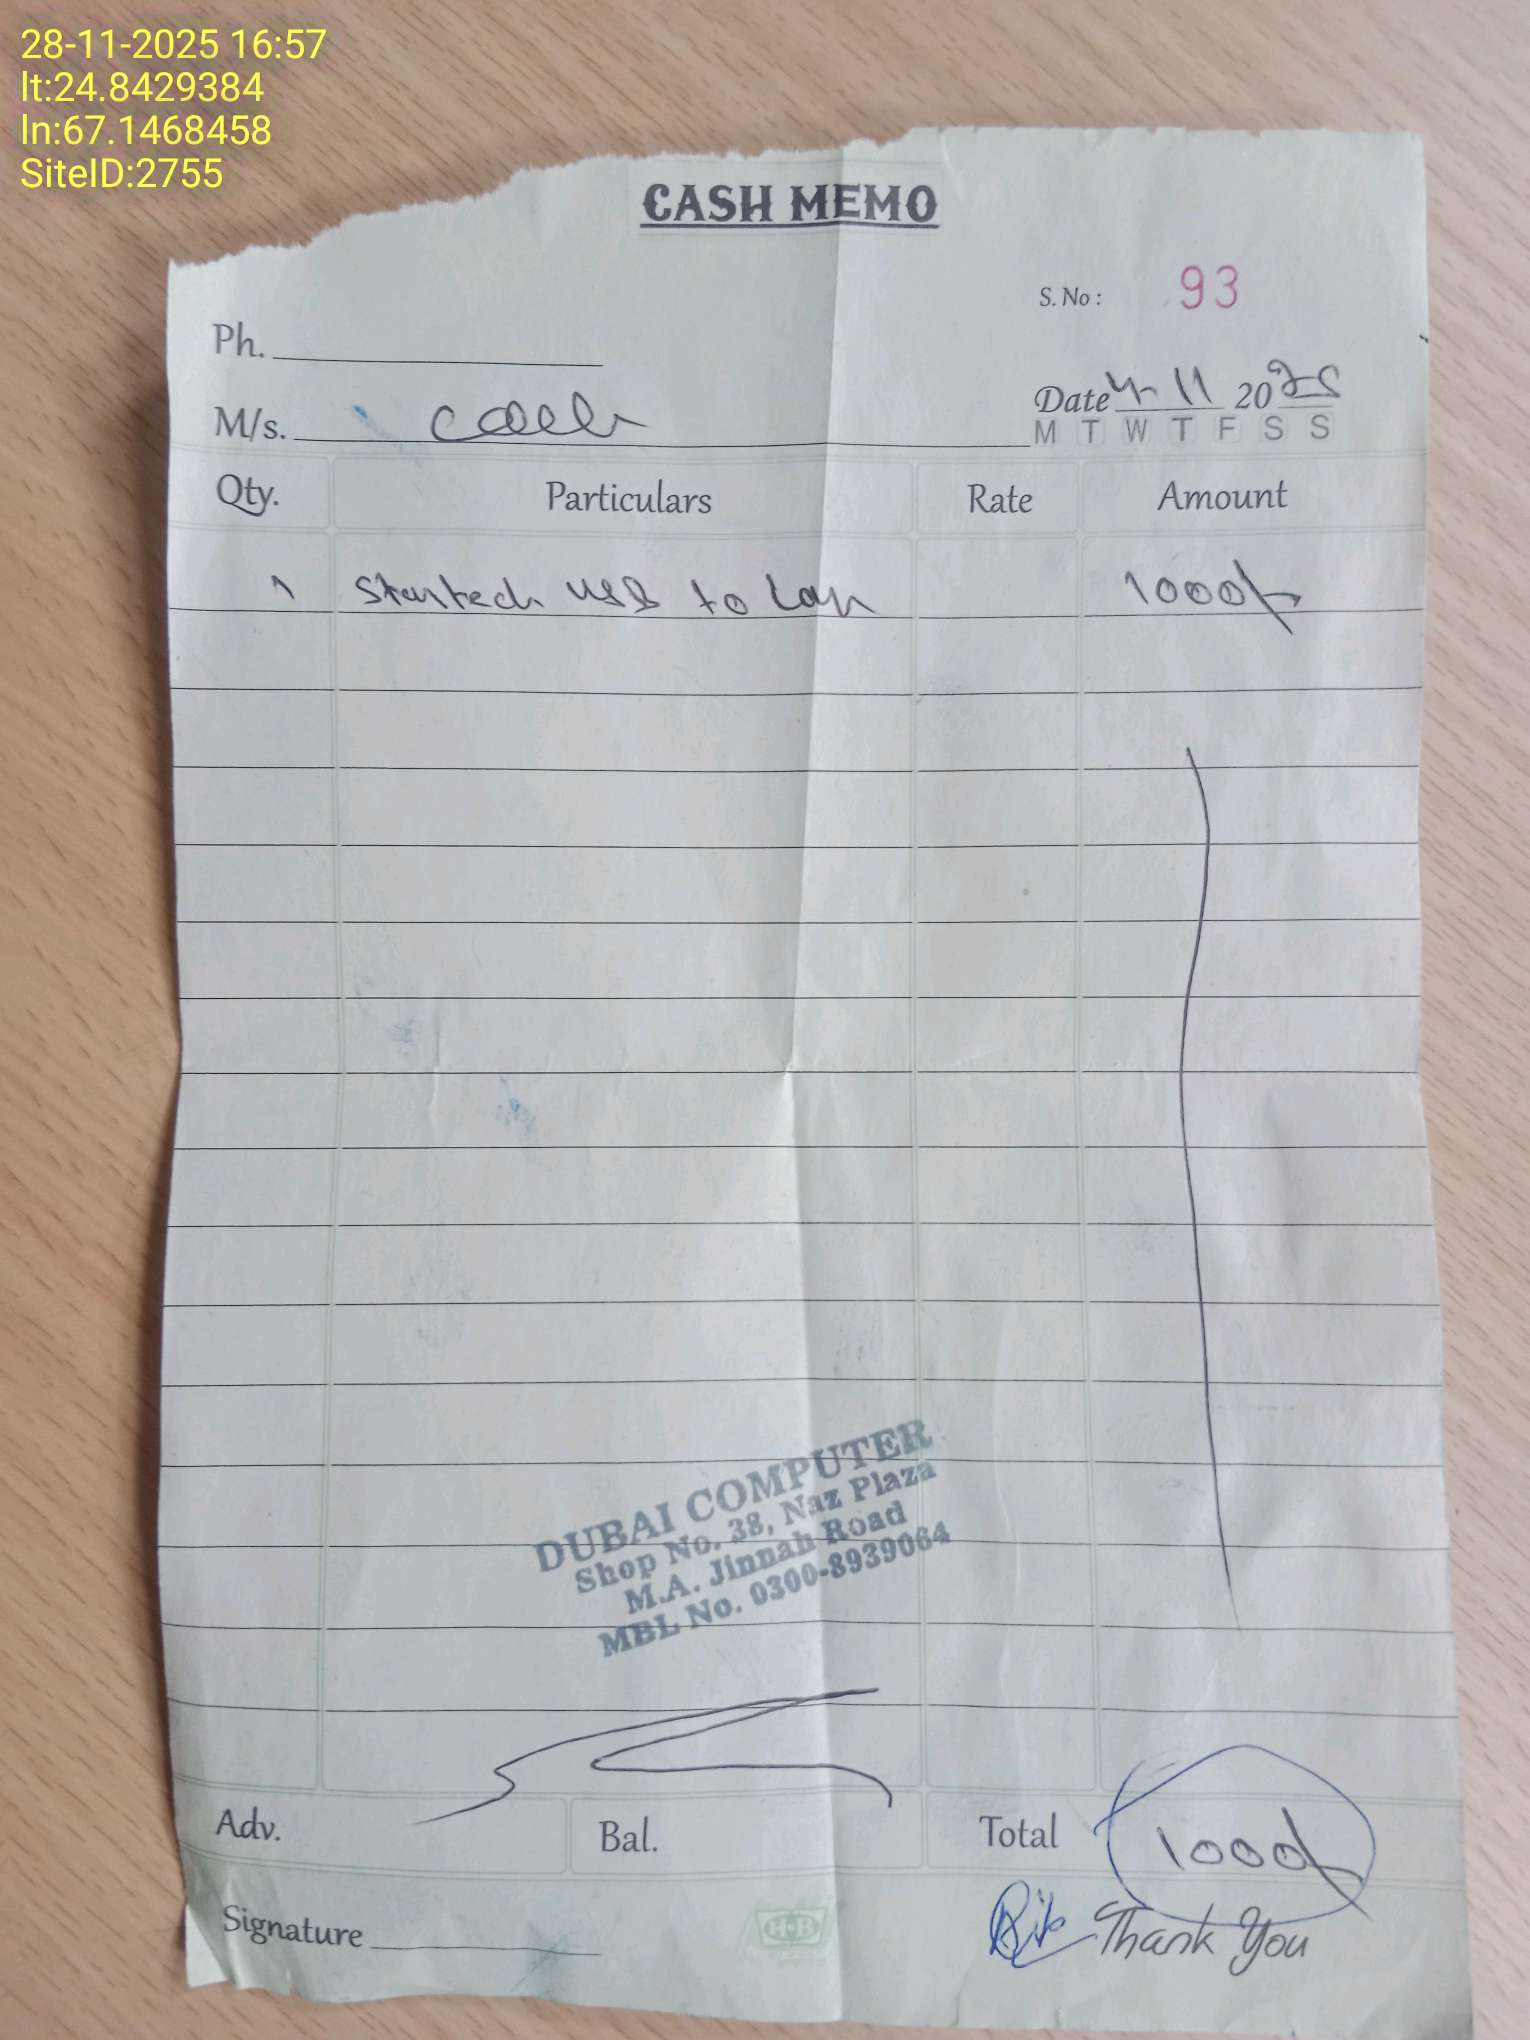 28-11-2025 16:57
lt:24.8429384
ln:67.1468458
SiteID:2755
CASH MEMO
S. No : 93
Ph.
M/s. Cash
Date 11 2025
M T W T F S S
Qty. Particulars Rate Amount
1 Startech USB to Lan 1000/-
DUBAI COMPUTER
Shop No. 38, Naz Plaza
M.A. Jinnah Road
MBL No. 0300-8939064
Adv. Bal. Total 1000/-
Signature
Thank You
H-B